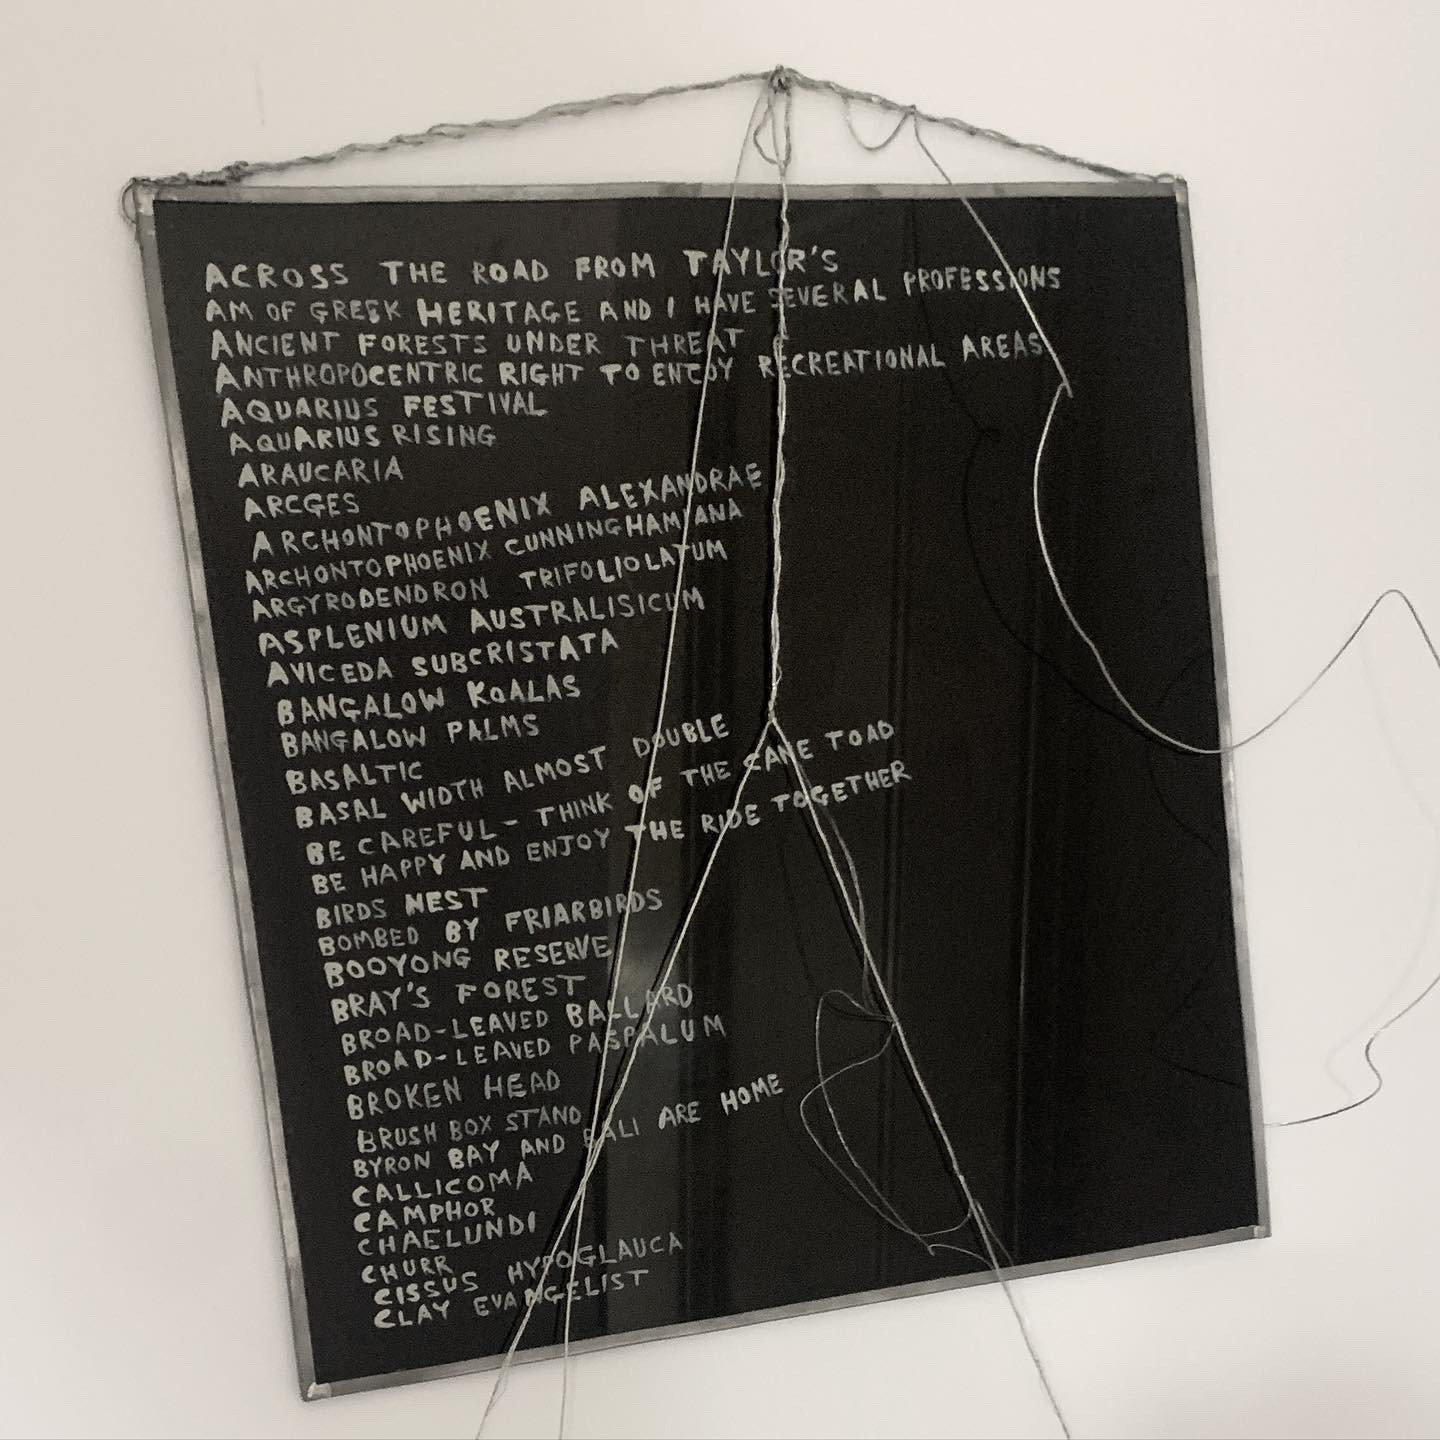 ACROSS THE ROAD FROM TAYLOR'S
AM OF GREEK HERITAGE AND I HAVE SEVERAL PROFESSIONS
ANCIENT FORESTS UNDER THREAT
ANTHROPOCENTRIC RIGHT TO ENJOY RECREATIONAL AREAS
AQUARIUS FESTIVAL
AQUARIUS RISING
ARAUCARIA
ARCGES
ARCHONTOPHOENIX ALEXANDRAE
ARCHONTOPHOENIX CUNNINGHAMIANA
ARGYRODENDRON TRIFOLIOLATUM
ASPLENIUM AUSTRALISICUM
AVICEDA SUBCRISTATA
BANGALOW KOALAS
BANGALOW PALMS
BASALTIC
BASAL WIDTH ALMOST DOUBLE
BE CAREFUL - THINK OF THE CANE TOAD
BE HAPPY AND ENJOY THE RIDE TOGETHER
BIRDS NEST
BOMBED BY FRIARBIRDS
BOOYONG RESERVE
BRAY'S FOREST
BROAD-LEAVED BALLARD
BROAD-LEAVED PASPALUM
BROKEN HEAD
BRUSH BOX STAND
BYRON BAY AND BALI ARE HOME
CALLICOMA
CAMPHOR
CHAELUNDI
CHURR
CISSUS HYPOGLAUCA
CLAY EVANGELIST